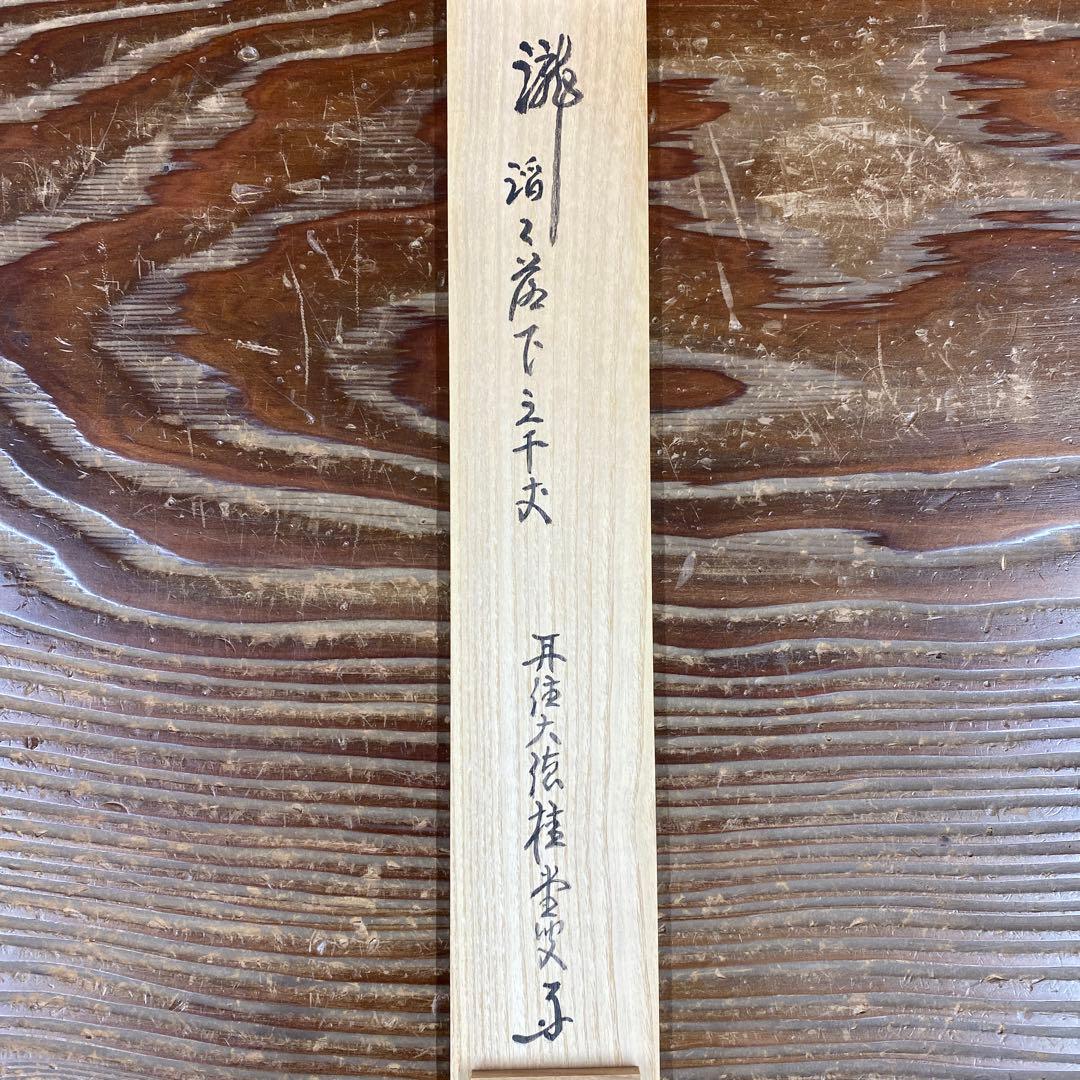 瀧 滔々落下三千丈 再住大徳桂堂叟